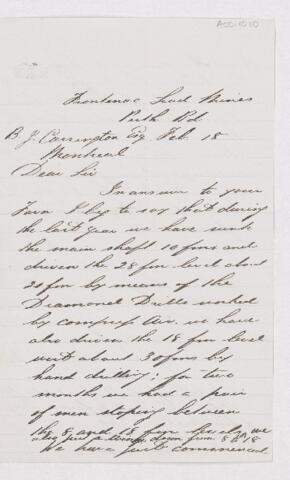 ACC 1010
Frontenac Lead Mines
Perth Rd.
B. J. Harrington Esq Feb. 18
Montreal
Dear Sir
In answer to your
Favor I beg to say that during
the last year we have sunk
the main shaft 10 fms and
driven the 28 fm level about
20 fm by means of the
Diamond Drills worked
by compress Air. we have
also driven the 18 fm level
west about 30 fms by
hand drilling; for two
months we had a pair
of men stoping between
the 8 and 18 fm levels, we
also put a winze down from 8 to 18
We have just commenced